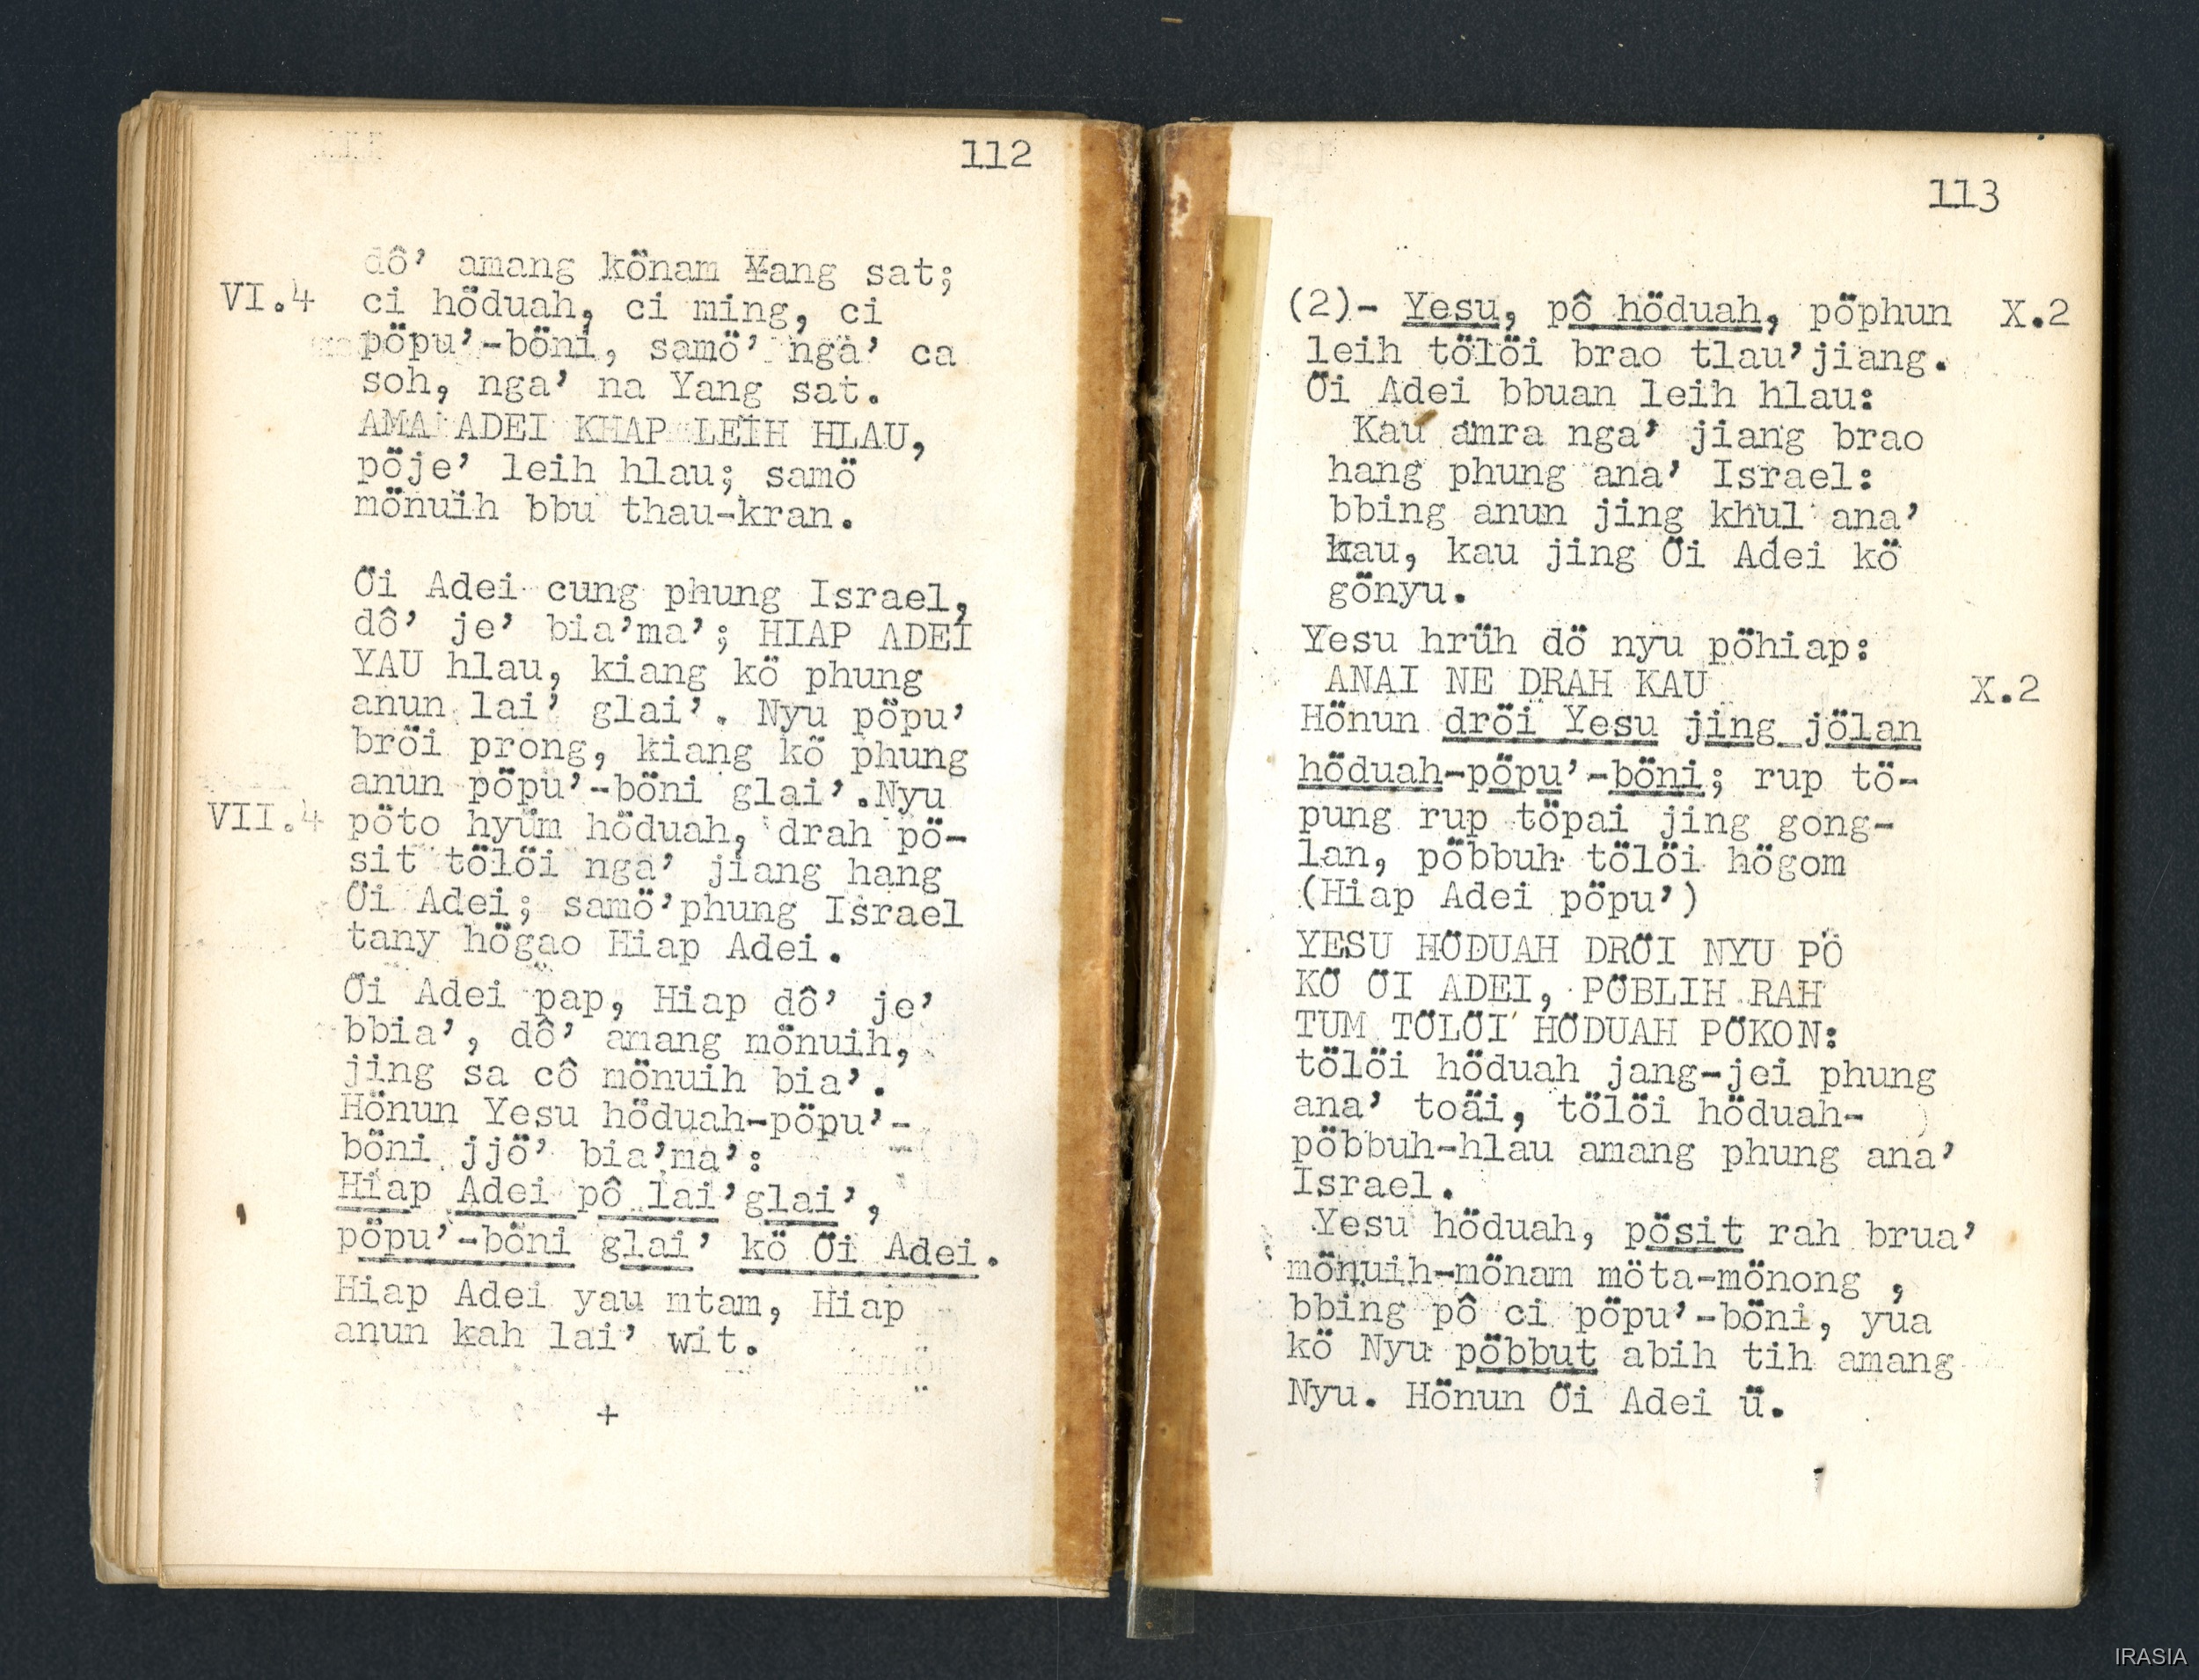 112
dô’ amang könam Yang sat;
VI.4 ci höduah, ci ming, ci
pöpu’-böni, samö’ nga’ ca
soh, nga’ na Yang sat.
AMA ADEI KHAP LEIH HLAU,
pöje’ leih hlau; samö
mönuih bbu thau-kran.
Öi Adei cung phung Israel,
dô’ je’ bia’ma’; HIAP ADEI
YAU hlau, kiang kö phung
anun lai’ glai’. Nyu pöpu’
bröi prong, kiang kö phung
anun pöpu’-böni glai’.Nyu
VII.4 pöto hyüm höduah, drah pö-
sit tölöi nga’ jiang hang
Öi Adei; samö’phung Israel
tany högao Hiap Adei.
Öi Adei pap, Hiap dô’ je’
bbia’, dô’ amang mönuih,
jing sa cô mönuih bia’.
Hönun Yesu höduah-pöpu’-
böni jjö’ bia’ma’:
Hiap Adei pô lai’glai’,
pöpu’-böni glai’ kö Öi Adei.
Hiap Adei yau mtam, Hiap
anun kah lai’ wit.
+
113
(2)- Yesu, pô höduah, pöphun X.2
leih tölöi brao tlau’jiang.
Öi Adei bbuan leih hlau:
Kau amra nga’ jiang brao
hang phung ana’ Israel:
bbing anun jing khul ana’
kau, kau jing Öi Adei kö
gönyu.
Yesu hrüh dö nyu pöhiap:
ANAI NE DRAH KAU X.2
Hönun dröi Yesu jing jölan
höduah-pöpu’-böni; rup tö-
pung rup töpai jing gong-
lan, pöbbuh tölöi högom
(Hiap Adei pöpu’)
YESU HÖDUAH DRÖI NYU PÖ
KÖ ÖI ADEI, PÖBLIH RAH
TUM TÖLÖI HÖDUAH PÖKON:
tölöi höduah jang-jei phung
ana’ toäi, tölöi höduah-
pöbbuh-hlau amang phung ana’
Israel.
Yesu höduah, pösit rah brua’
mönuih-mönam möta-mönong ,
bbing pô ci pöpu’-böni, yua
kö Nyu pöbbut abih tih amang
Nyu. Hönun Öi Adei ü.
IRASIA